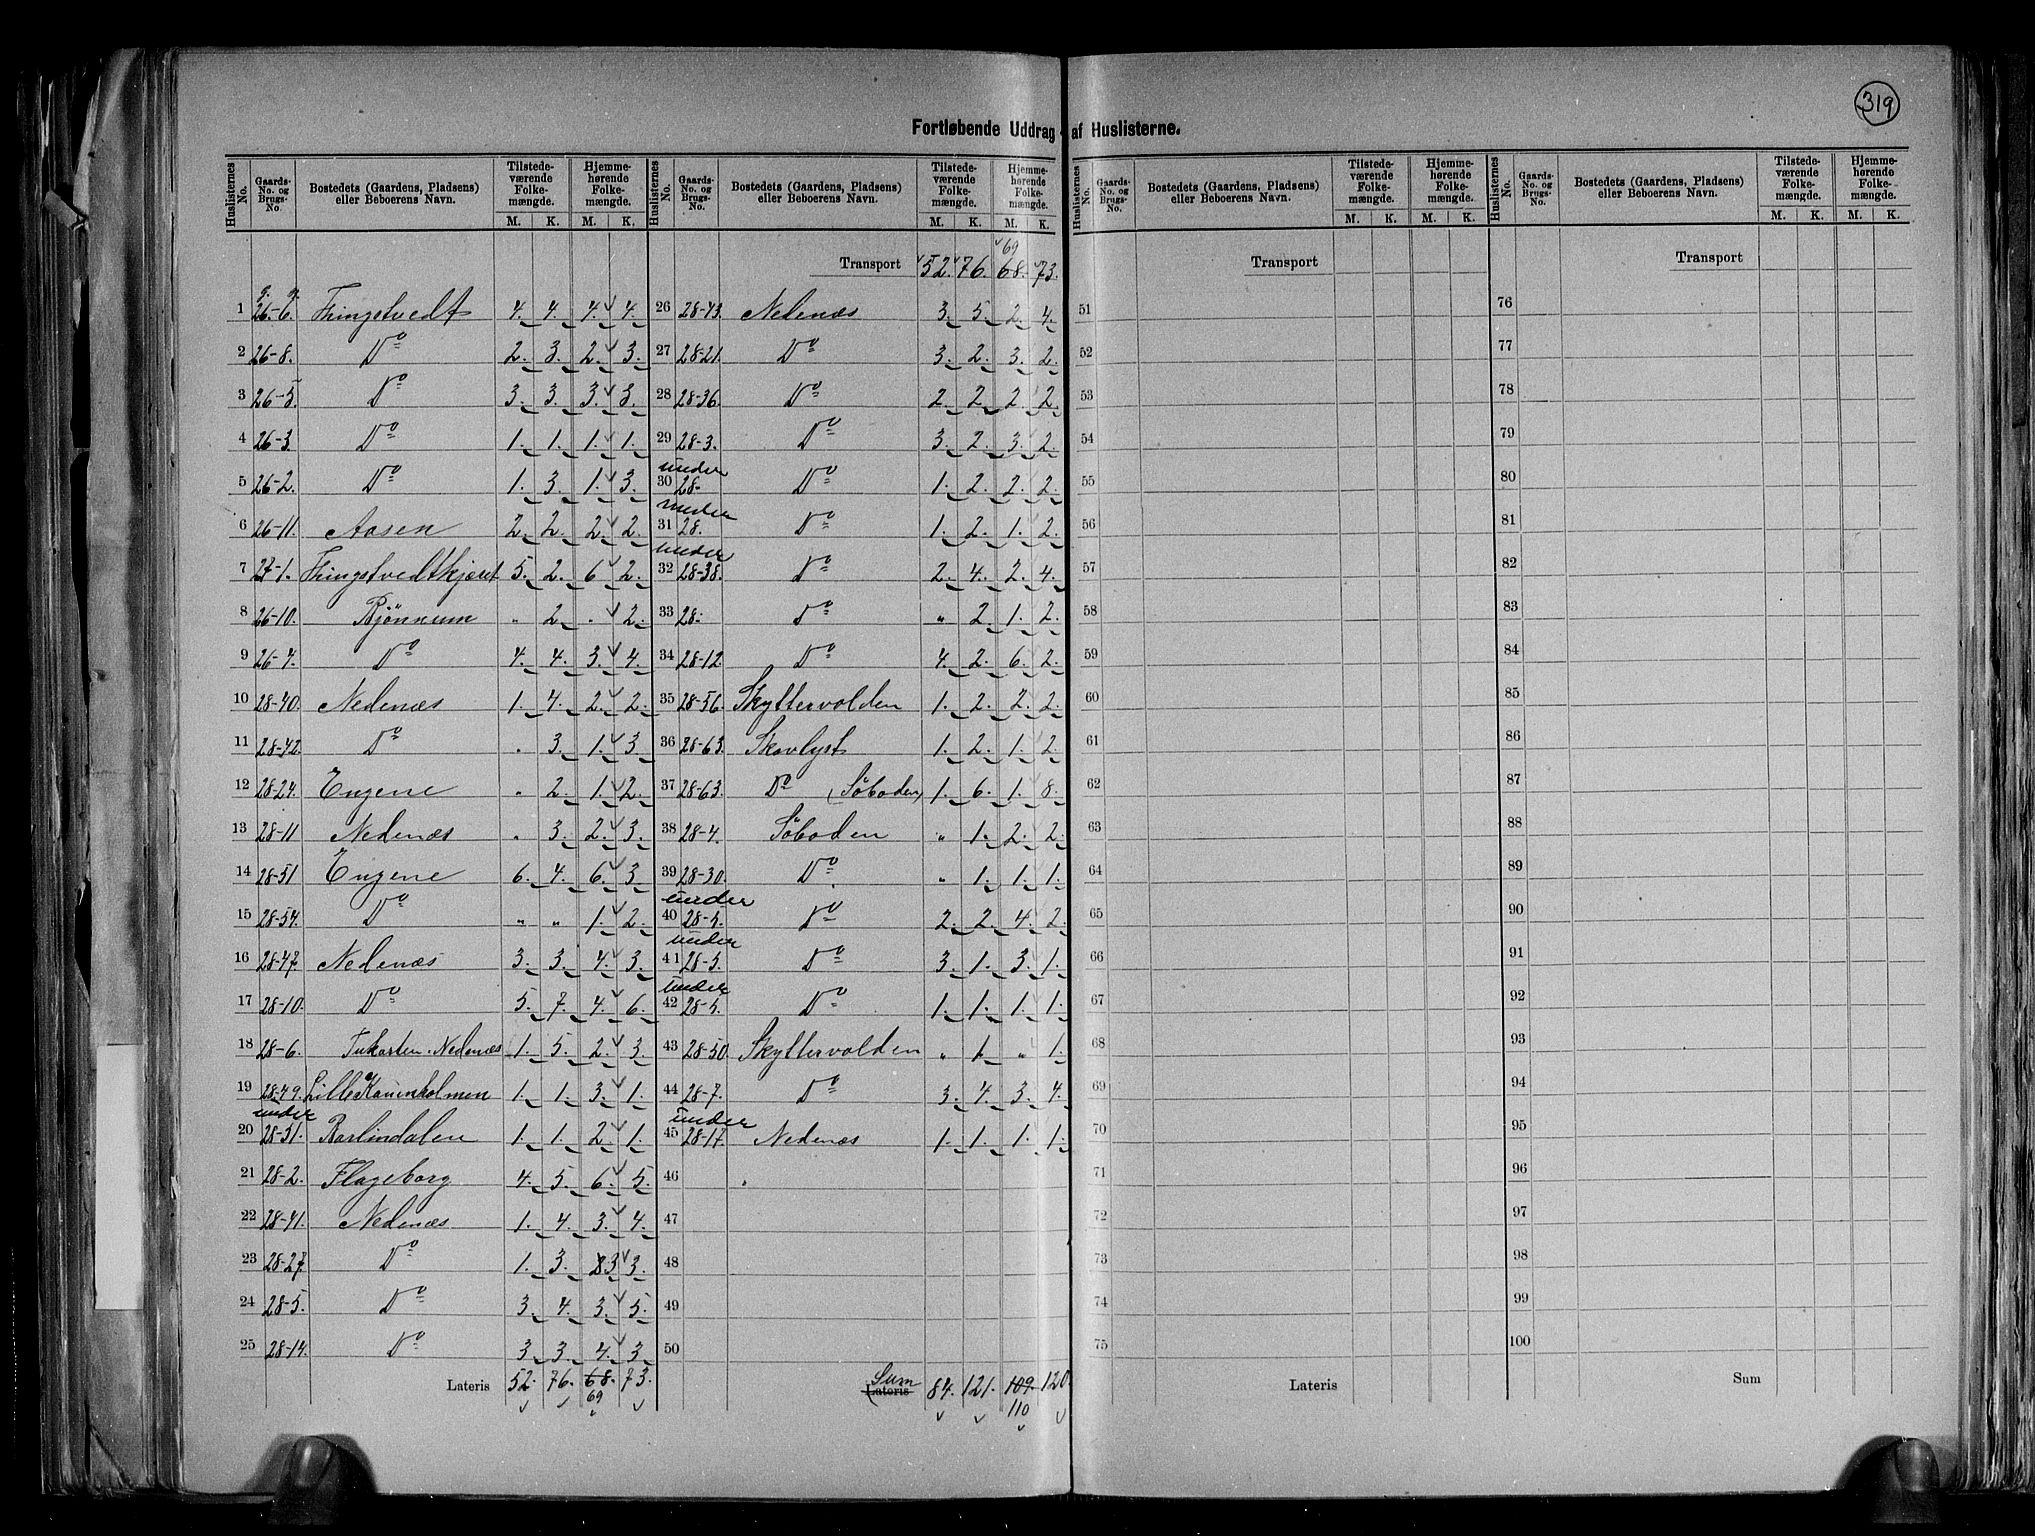 319
Fortløbende Uddrag af Huslisterne.
Huslisternes No. | Gaards-No. og Brugs-No. | Bostedets (Gaardens, Pladsens) eller Beboerens Navn. | Tilstedeværende Folkemængde. M. K. | Hjemmehørende Folkemængde. M. K.
1 26-6. Fringstvedt 4. 4. 4. 4.
2 26-8. Do 2. 3. 2. 3.
3 26-5. Do 3. 3. 3. 3.
4 26-3. Do 1. 1. 1. 1.
5 26-2. Do 1. 3. 1. 3.
6 26-11. Aasen 2. 2. 2. 2.
7 27-1. Fringstvedtkjæret 5. 2. 6. 2.
8 26-10. Bjønnum " 2. " 2.
9 26-4. Do 4. 4. 3. 4.
10 28-40. Nedenæs 1. 4. 2. 2.
11 28-42. Do " 3. 1. 3.
12 28-24. Engene " 2. 1. 2.
13 28-11 Nedenæs " 3. 2. 3.
14 28-51 Engene 6. 4. 6. 3.
15 28-54. Do " " 1. 2.
16 28-47. Nedenæs 3. 3. 4. 3.
17 28-10. Do 5. 7. 4. 6.
18 28-6. Nedenæs 1. 5. 2. 3.
19 28-49. Lille 1. 1. 3. 1.
20 under 28-31. Barlindalen 1. 1. 2. 1.
21 28-2. Flageborg 4. 5. 6. 5.
22 28-41. Nedenæs 1. 4. 3. 4.
23 28-27. Do 1. 3. 3 3.
24 28-5. Do 3. 4. 3. 5.
25 28-14. Do 3. 3. 4. 3.
Lateris 52. 76. 68. 73.
69
Huslisternes No. | Gaards-No. og Brugs-No. | Bostedets (Gaardens, Pladsens) eller Beboerens Navn. | Tilstedeværende Folkemængde. M. K. | Hjemmehørende Folkemængde. M. K.
69
Transport 52. 76. 68. 73.
26 28-43. Nedenæs 3. 5. 2. 4.
27 28-21. Do 3. 2. 3. 2.
28 28-36. Do 2. 2. 2. 2.
29 28-3. Do 3. 2. 3. 2.
30 under 28. Do 1. 2. 2. 2.
31 under 28. Do 1. 2. 1. 2.
32 under 28-38. Do 2. 4. 2. 4.
33 28. Do " 2. 1. 2.
34 28-12. Do 4. 2. 6. 2.
35 28-56. Skyttervolden 1. 2. 2. 2.
36 28-63. Skovlyst 1. 2. 1. 2.
37 28-63. Do (Søboden) 1. 6. 1. 8.
38 28-4. Søboden " 1. 2. 2.
39 28-30. Do " 1. 1. 1.
40 under 28-5. Do 2. 2. 4. 2.
41 under 28-5. Do 3. 1. 3. 1.
42 under 28-5. Do 1. 1. 1. 1.
43 28-50. Skyttervolden " 1. " 1.
44 28-7. Do 3. 4. 3. 4.
45 under 28-17. Nedenæs 1. 1. 1. 1.
46
47
48
49
50
Sum
Lateris 84. 121. 109. 120.
110
Huslisternes No. | Gaards-No. og Brugs-No. | Bostedets (Gaardens, Pladsens) eller Beboerens Navn. | Tilstedeværende Folkemængde. M. K. | Hjemmehørende Folkemængde. M. K.
Transport
51
52
53
54
55
56
57
58
59
60
61
62
63
64
65
66
67
68
69
70
71
72
73
74
75
Lateris
Huslisternes No. | Gaards-No. og Brugs-No. | Bostedets (Gaardens, Pladsens) eller Beboerens Navn. | Tilstedeværende Folkemængde. M. K. | Hjemmehørende Folkemængde. M. K.
Transport
76
77
78
79
80
81
82
83
84
85
86
87
88
89
90
91
92
93
94
95
96
97
98
99
100
Sum